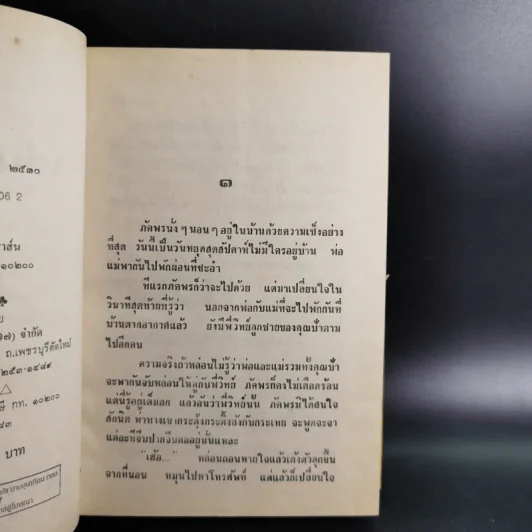 ๒๕๓๐
06 2
าส์น
๑๐๒๐๐
ย
๗) จำกัด
ถ.เพชรบุรีตัดใหม่
๒๕๓-๑๔๘๙
กท. ๑๐๒๐๐
บาท
๑
ภัคพรนั่ง ๆ นอน ๆ อยู่ในบ้านด้วยความเซ็งอย่าง
ที่สุด วันนี้เป็นวันหยุดสุดสัปดาห์ไม่มีใครอยู่บ้าน พ่อ
แม่พากันไปพักผ่อนที่ชะอำ
ทีแรกภัคพรก็ว่าจะไปด้วย แต่มาเปลี่ยนใจใน
วินาทีสุดท้ายที่รู้ว่า นอกจากพ่อกับแม่ที่จะไปพักกันที่
บ้านตากอากาศแล้ว ยังมีพี่วิทย์ลูกชายของคุณป้าตาม
ไปอีกคน
ความจริงถ้าหล่อนไม่รู้ว่าพ่อและแม่รวมทั้งคุณป้า
จะพากันจับหล่อนให้คู่กับพี่วิทย์ ภัคพรก็คงไม่เดือดร้อน
แต่นี่รู้อยู่เต็มอก แล้วอีนว่าพี่วิทย์นั้น ภัคพรมิได้สนใจ
สักนิด ท่าทางเขากระตุ้งกระติ้งยังกับกระเทย จะพูดจะจา
แต่ละทีจีบปากจีบคออยู่นั่นแหละ
"เฮ้อ..." หล่อนถอนหายใจแล้วเด้งตัวลุกขึ้น
จากที่นอน หมุนไปหาโทรศัพท์ แต่แล้วก็เปลี่ยนใจ